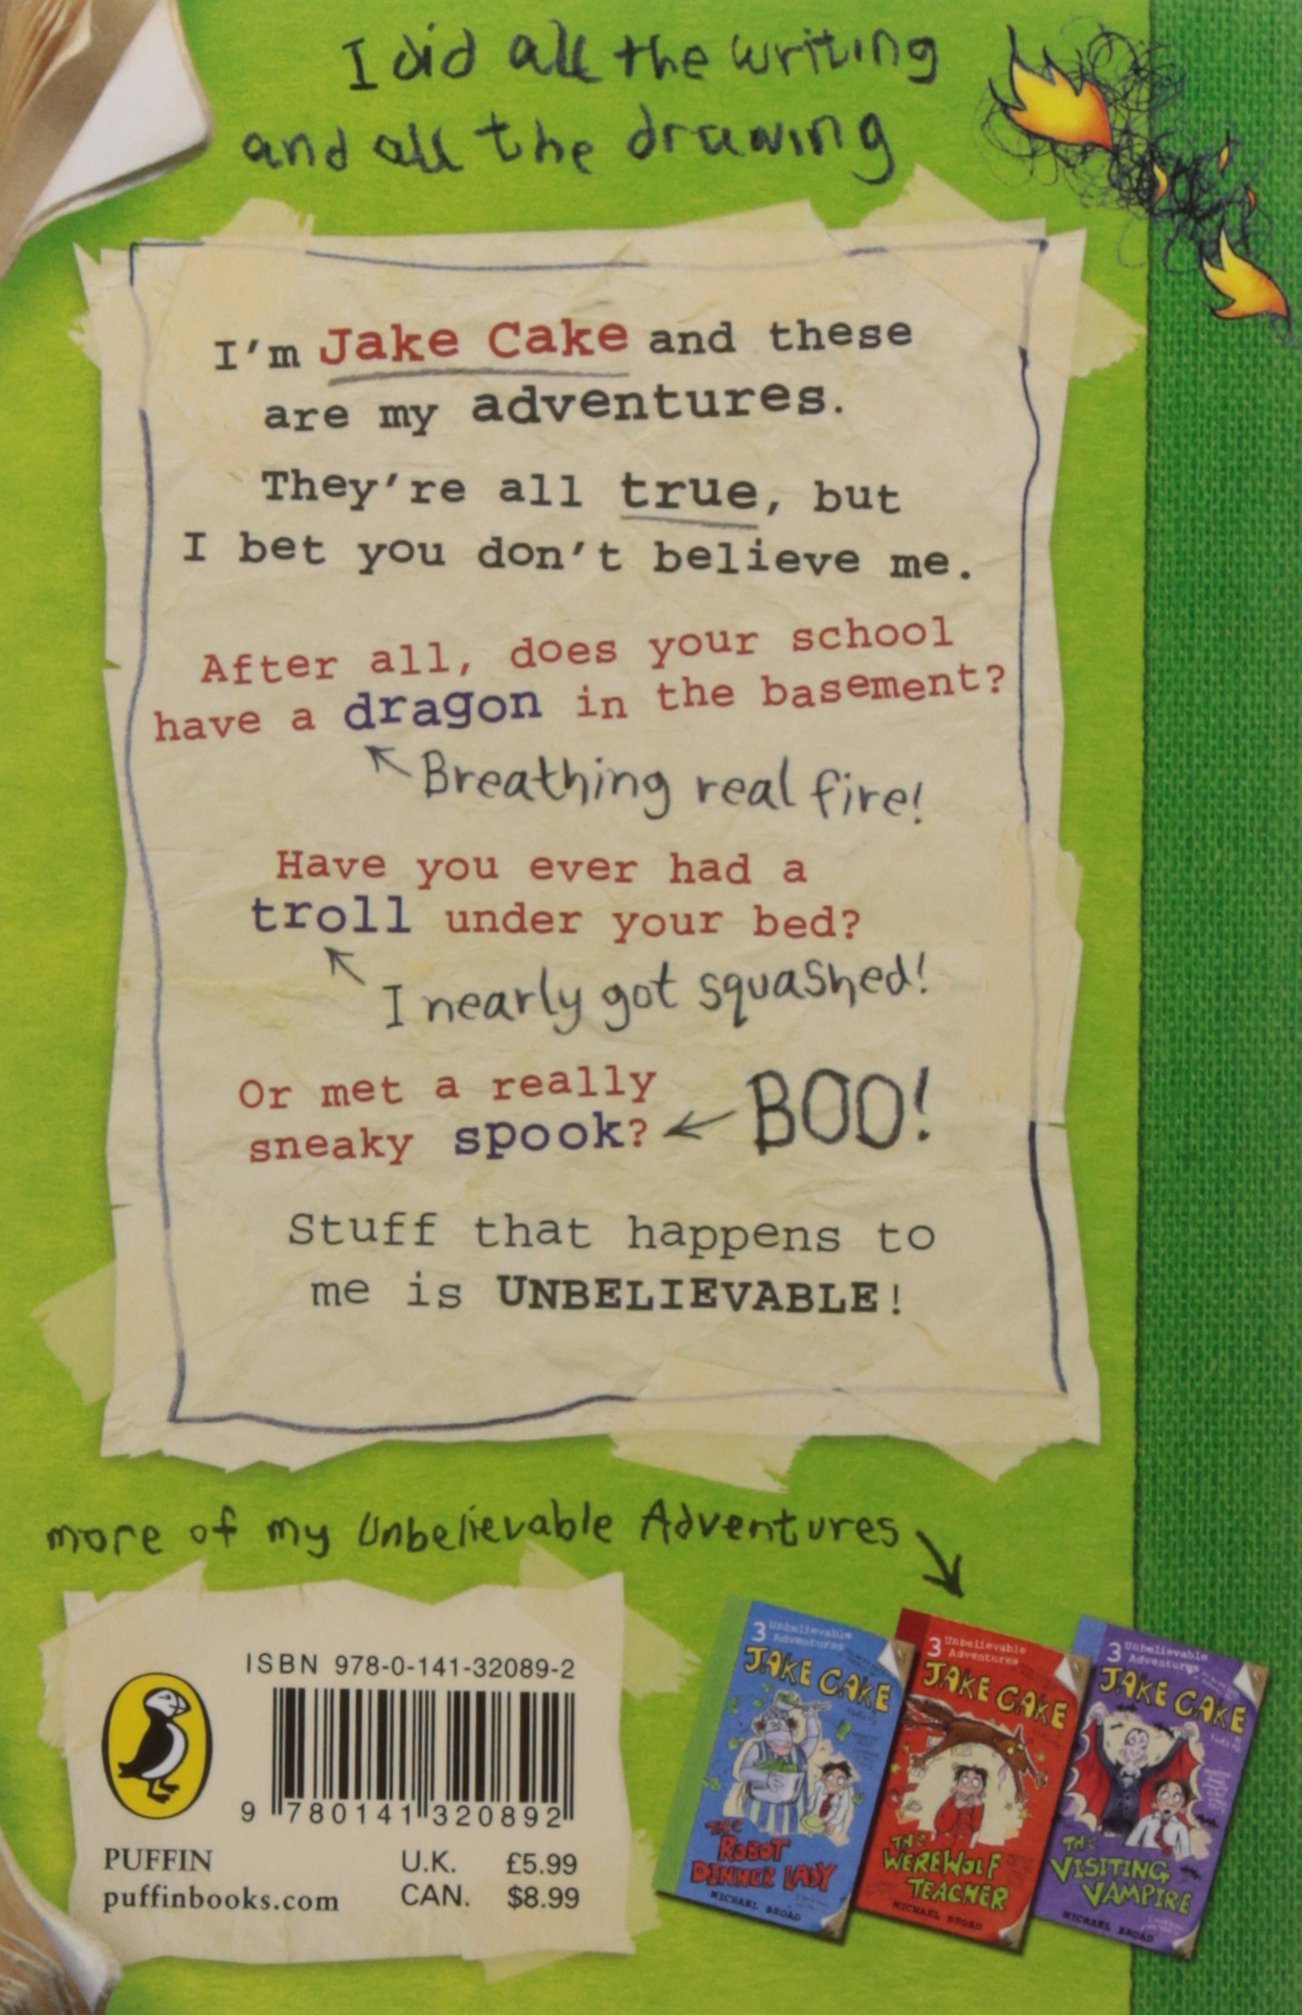 I did all the writing
and all the drawing
I'm Jake Cake and these
are my adventures.
They're all true, but
I bet you don't believe me.
After all, does your school
have a dragon in the basement?
Breathing real fire!
Have you ever had a
troll under your bed?
I nearly got squashed!
Or met a really
sneaky spook?
BOO!
Stuff that happens to
me is UNBELIEVABLE!
more of my Unbelievable Adventures
ISBN 978-0-141-32089-2
9 780141 320892
PUFFIN
puffinbooks.com
U.K. £5.99
CAN. $8.99
3 Unbelievable
Adventures
JAKE CAKE
THE
ROBOT
DINNER LADY
MICHAEL BROAD
3 Unbelievable
Adventures
JAKE CAKE
THE
WEREWOLF
TEACHER
MICHAEL BROAD
3 Unbelievable
Adventures
JAKE CAKE
THE
VISITING
VAMPIRE
MICHAEL BROAD